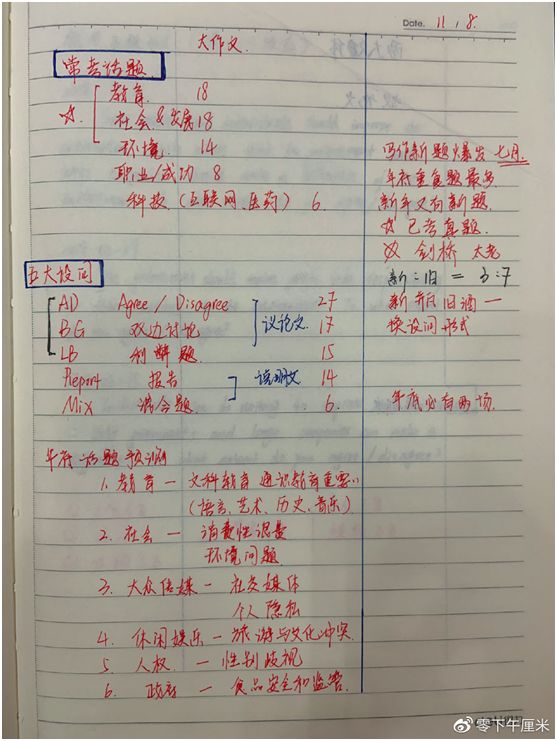 Date. 11.8.
大作文
常考话题
教育 18
☆ 社会 & 发展 18
环境 14
职业/成功 8
科技 (互联网、医药) 6.
写作新题爆发 七月.
年底重复题最多
新年又有新题.
☆ 已考真题.
☆ 剑桥 太老
新:旧 = 3:7
新瓶旧酒一
换设问形式
年底必有两场.
五大设问
AD Agree / Disagree 27
BG 双边讨论 17
议论文
LB 利弊题 15
Report 报告 14
说明文
Mix 混合题 6.
年底话题预测
1. 教育 — 文科教育 通识教育重要
(语言、艺术、历史、音乐)
2. 社会 — 消费性
环境问题
3. 大众传媒 — 社交媒体
个人隐私
4. 休闲娱乐 — 旅游与文化冲突
5. 人权 — 性别歧视
6. 政府 — 食品安全和监管.
零下午厘米